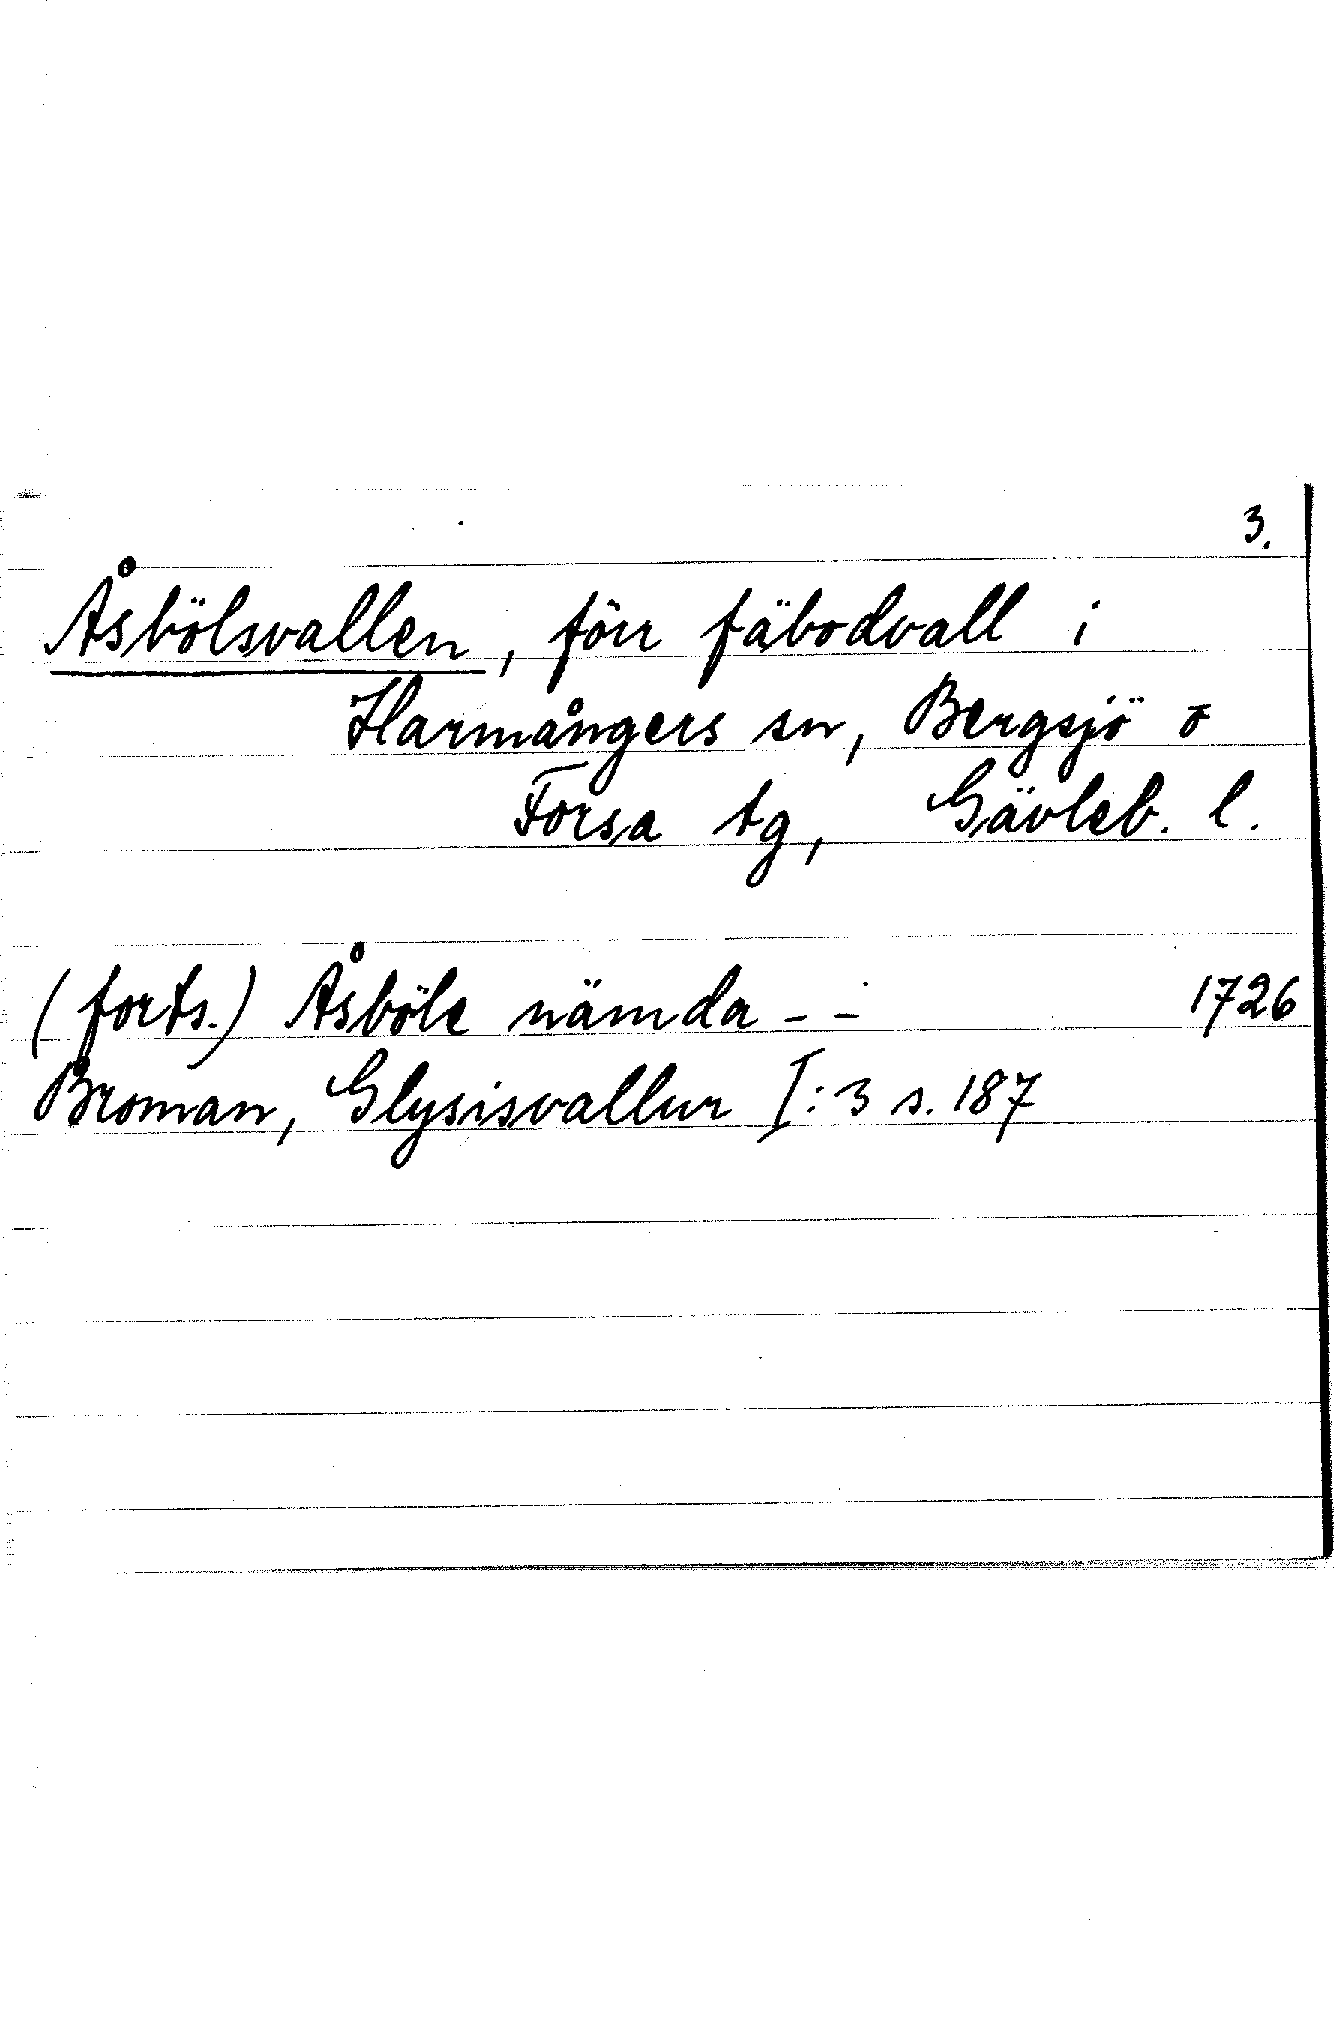 3.
Åsbölsvallen, förr fäbodvall i
Harmångers sn, Bergsjö o
Forsa tg, Gävleb. l.
(forts.) Åsböle nämda - - 1726
Broman, Glysisvallur I:3 s. 187